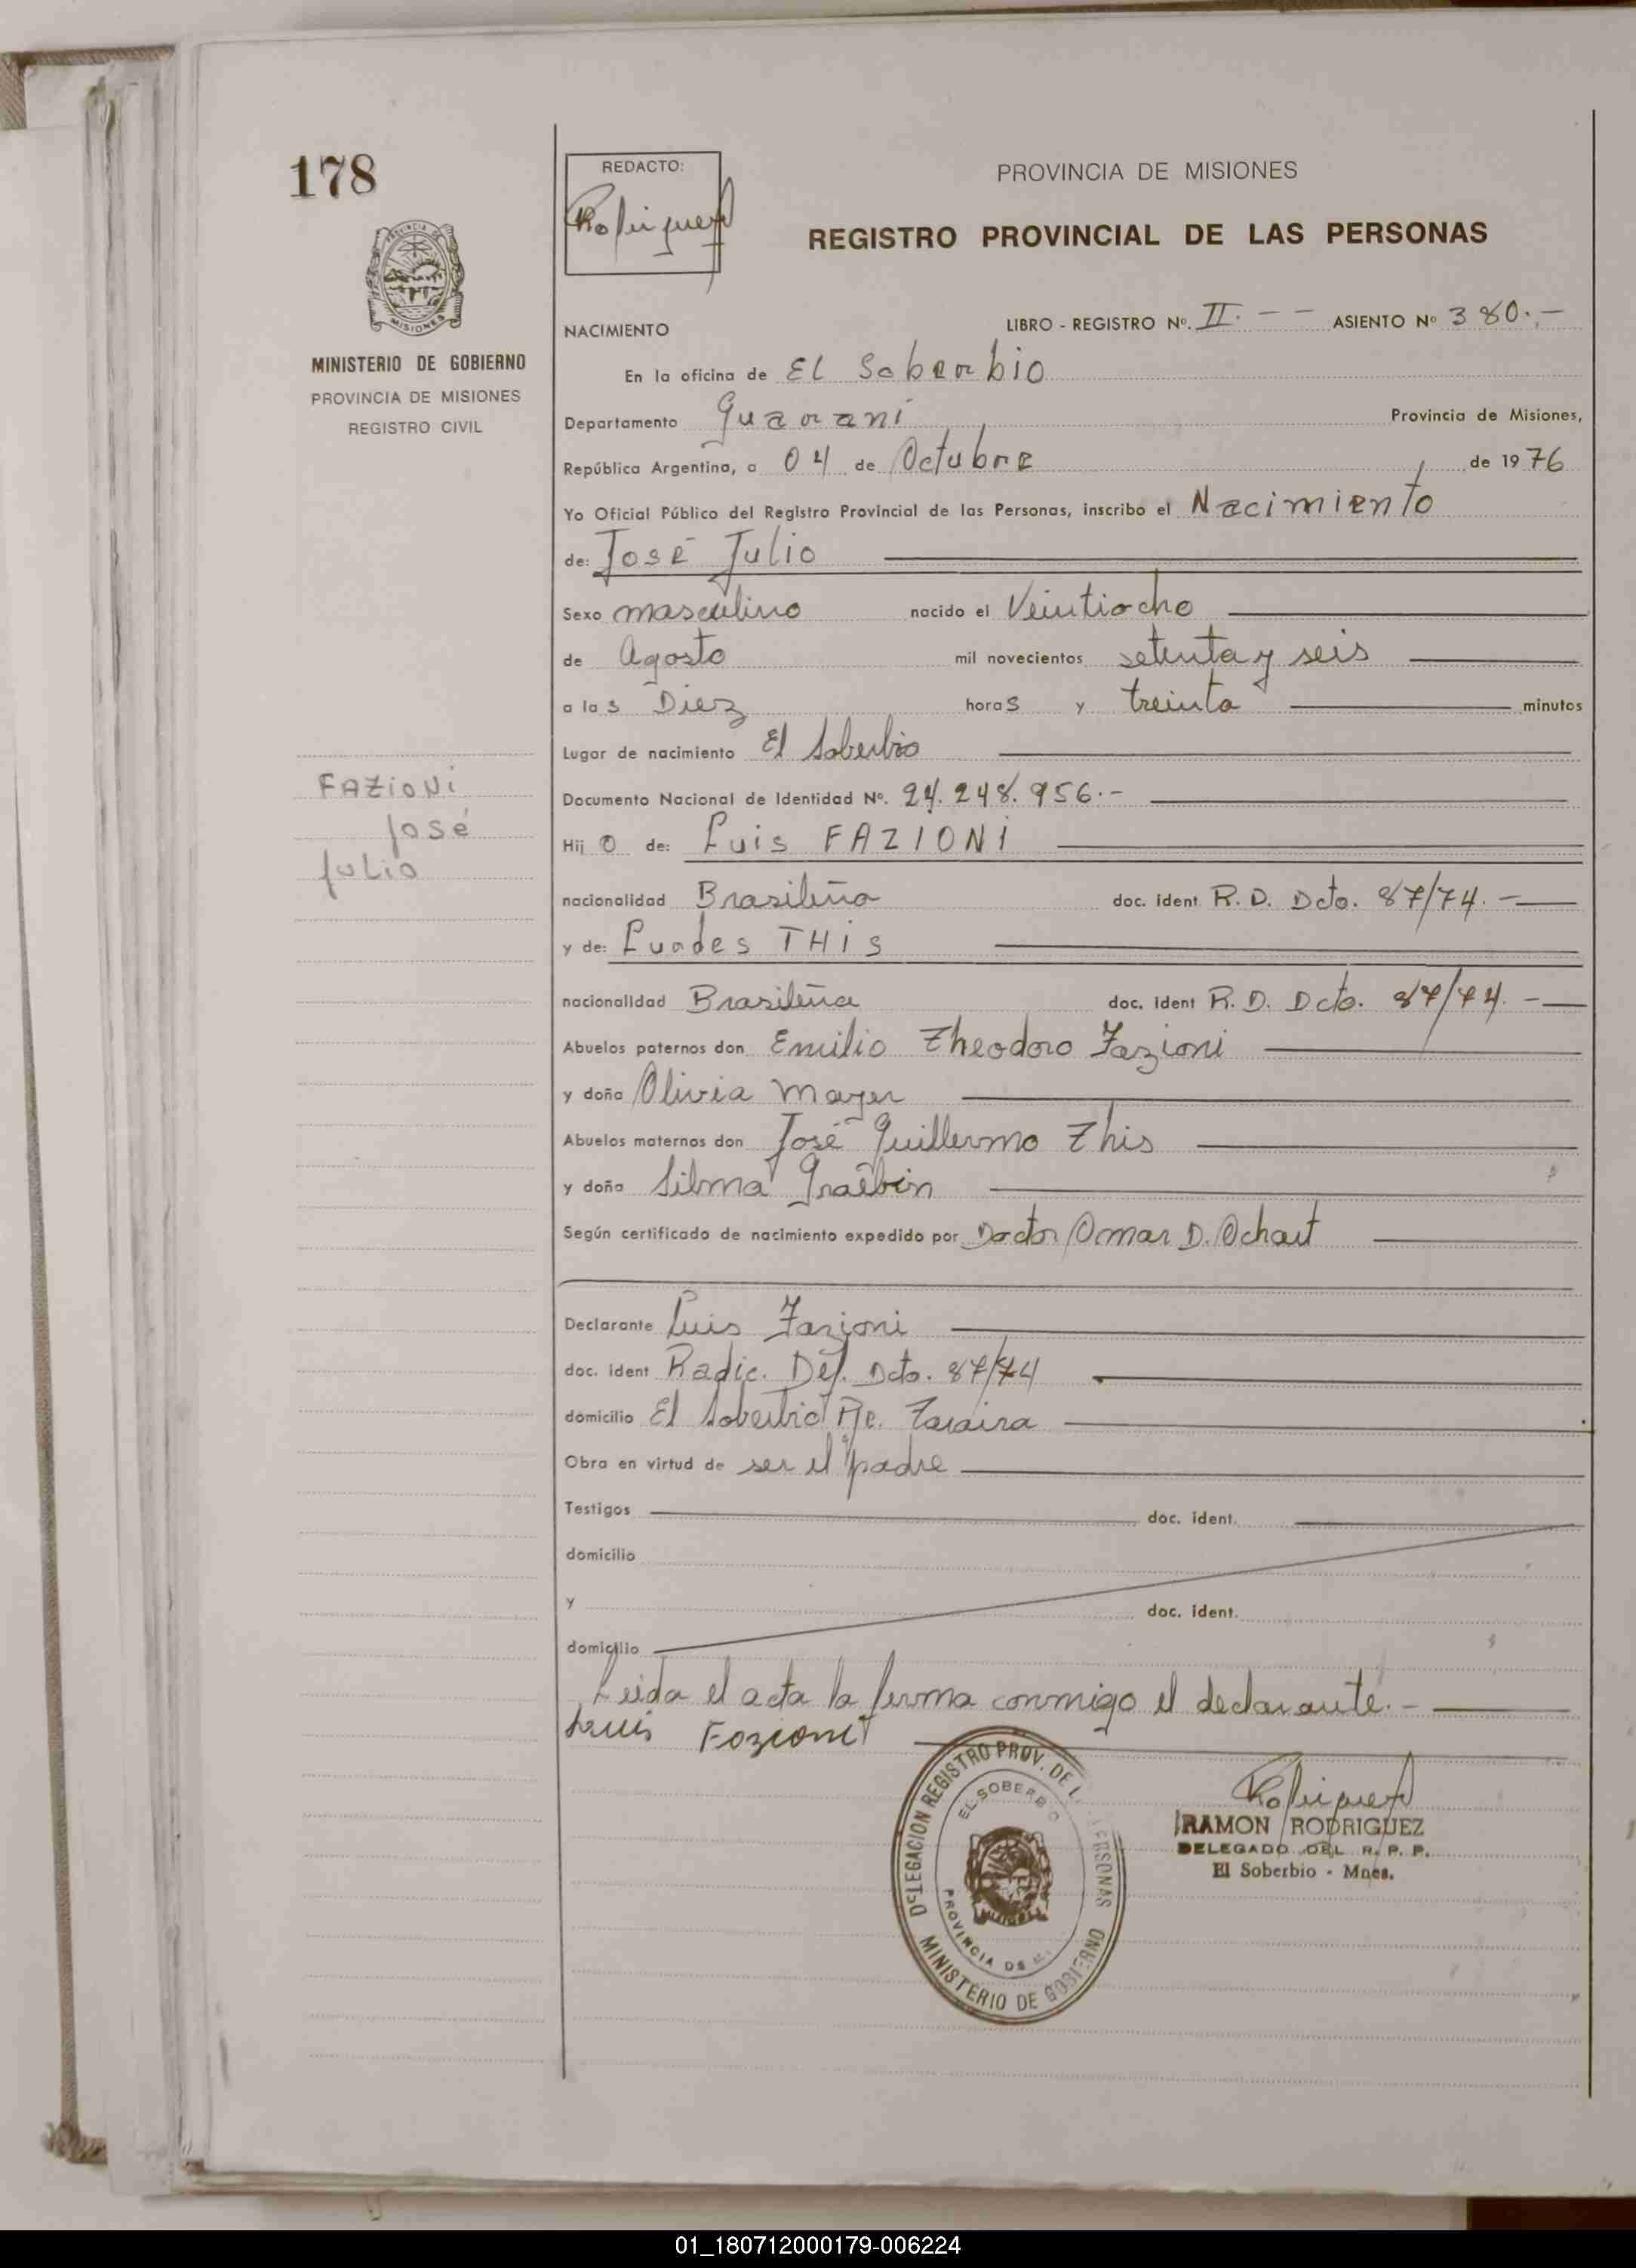 178
REDACTO:
Rodriguez
PROVINCIA DE MISIONES
REGISTRO PROVINCIAL DE LAS PERSONAS
PROVINCIA DE
MISIONES
MINISTERIO DE GOBIERNO
PROVINCIA DE MISIONES
REGISTRO CIVIL
NACIMIENTO LIBRO - REGISTRO Nº. II. - - ASIENTO Nº 380.-
En la oficina de EL Soberbio
Departamento Guarani Provincia de Misiones,
República Argentina, a 04 de Octubre de 1976
Yo Oficial Público del Registro Provincial de las Personas, inscribo el Nacimiento
de: José Julio
Sexo masculino nacido el Veintiocho
de Agosto mil novecientos setenta y seis
a las Diez horas y treinta minutos
Lugar de nacimiento El Soberbio
FAZioNi
José
Julio
Documento Nacional de Identidad Nº. 24.248.956.-
Hijo de: Luis FAZIONi
nacionalidad Brasileña doc. ident R. D. Dcto. 87/74.-
y de: Lurdes THis
nacionalidad Brasileña doc. ident R. D. Dcto. 87/74.-
Abuelos paternos don Emilio Theodoro Fazioni
y doña Olivia Mayer
Abuelos maternos don José Guillermo This
y doña Silma Graebin
Según certificado de nacimiento expedido por Doctor Omar D. Ochart
Declarante Luis Fazioni
doc. ident Radic. Def. Dcto. 87/74
domicilio El Soberbio
Obra en virtud de ser el padre
Testigos doc. ident.
domicilio
y doc. ident.
domicilio
Leida el acta la firma conmigo el declarante.-
Luis Fozioni
DELEGACION REGISTRO PROV. DE PERSONAS
EL SOBERBIO
PROVINCIA DE
MINISTERIO DE GOBIERNO
Rodriguez
RAMON RODRIGUEZ
DELEGADO DEL R. P. P.
El Soberbio - Mnes.
01_180712000179-006224